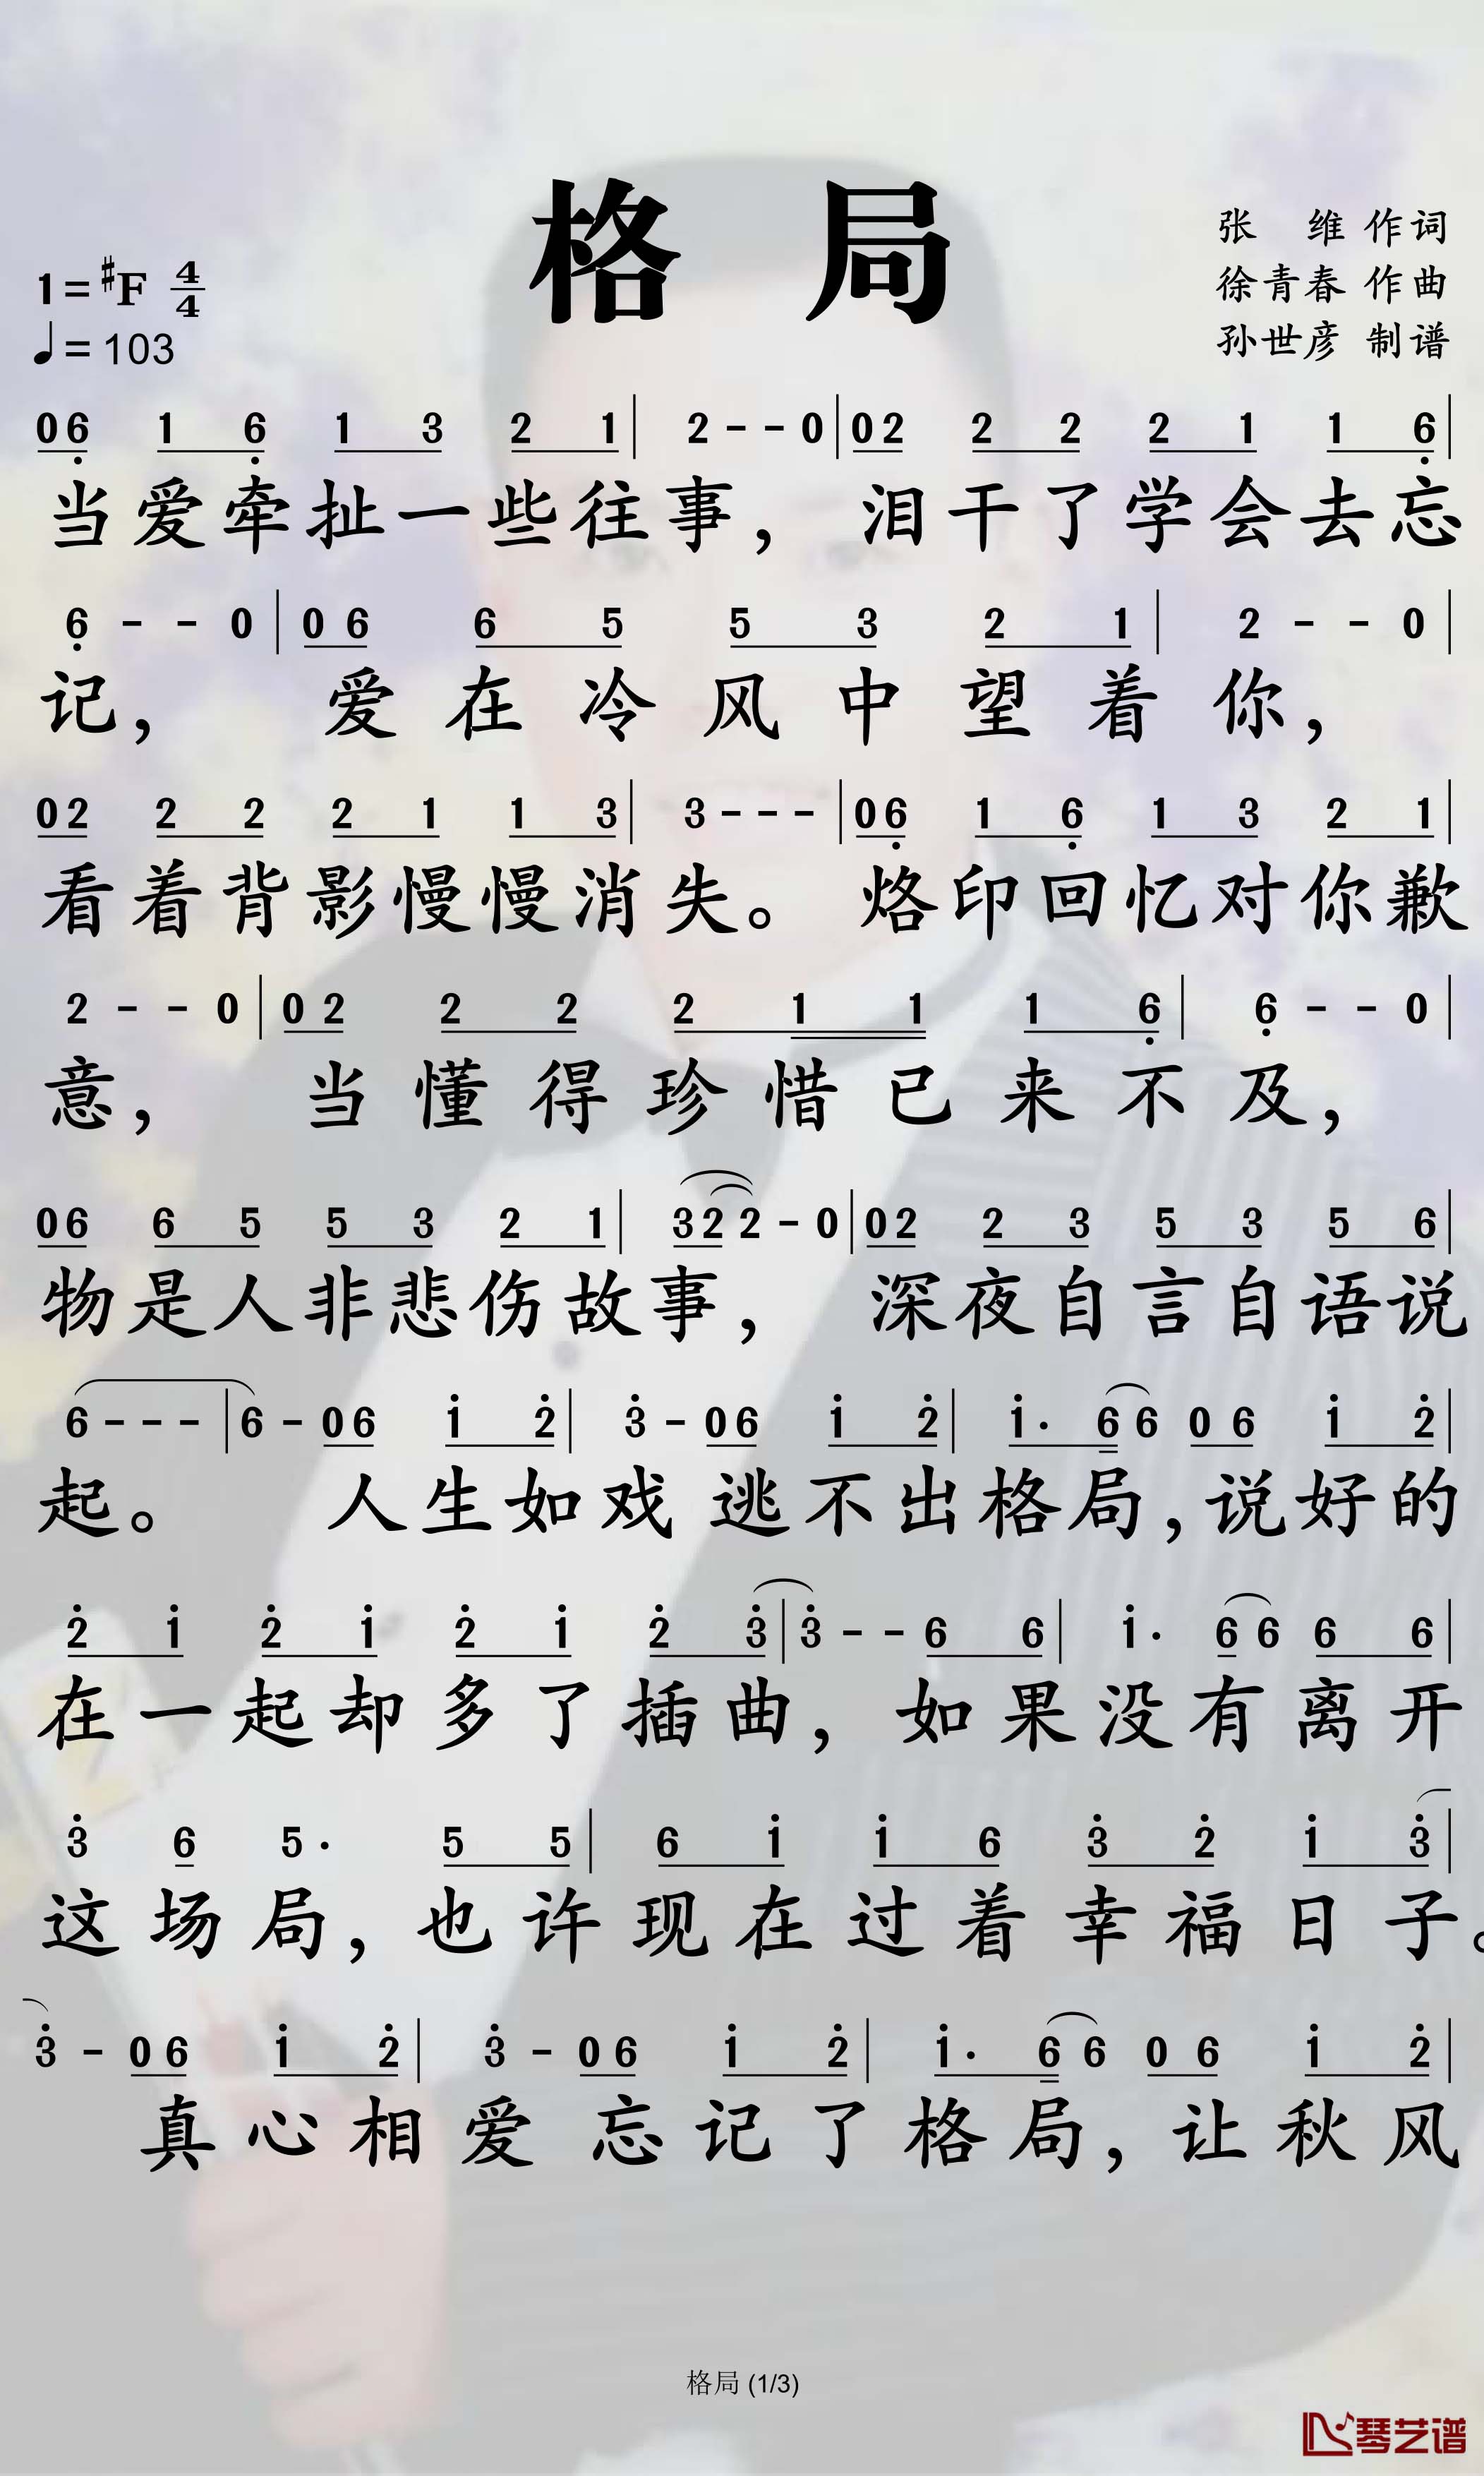 格 局
张 维 作词
徐青春 作曲
孙世彦 制谱
1=#F 4/4
♩=103
0 6̣ 1 6̣ 1 3 2 1 | 2 - - 0 | 0 2 2 2 2 1 1 6̣ |
当爱牵扯一些往事，泪干了学会去忘
6̣ - - 0 | 0 6 6 5 5 3 2 1 | 2 - - 0 |
记， 爱在冷风中望着你，
0 2 2 2 2 1 1 3 | 3 - - - | 0 6̣ 1 6̣ 1 3 2 1 |
看着背影慢慢消失。烙印回忆对你歉
2 - - 0 | 0 2 2 2 2 1 1 1 6̣ | 6̣ - - 0 |
意， 当懂得珍惜已来不及，
0 6 6 5 5 3 2 1 | 3 2 2 - 0 | 0 2 2 3 5 3 5 6 |
物是人非悲伤故事， 深夜自言自语说
6 - - - | 6 - 0 6 1̇ 2̇ | 3̇ - 0 6 1̇ 2̇ | 1̇ · 6 6 0 6 1̇ 2̇ |
起。 人生如戏逃不出格局，说好的
2̇ 1̇ 2̇ 1̇ 2̇ 1̇ 2̇ 3̇ | 3̇ - - 6 6 | 1̇ · 6 6 6 6 |
在一起却多了插曲，如果没有离开
3̇ 6 5 · 5 5 | 6 1̇ 1̇ 6 3̇ 2̇ 1̇ 3̇ |
这场局，也许现在过着幸福日子。
3̇ - 0 6 1̇ 2̇ | 3̇ - 0 6 1̇ 2̇ | 1̇ · 6 6 0 6 1̇ 2̇ |
真心相爱忘记了格局，让秋风
格局 (1/3)
琴艺谱